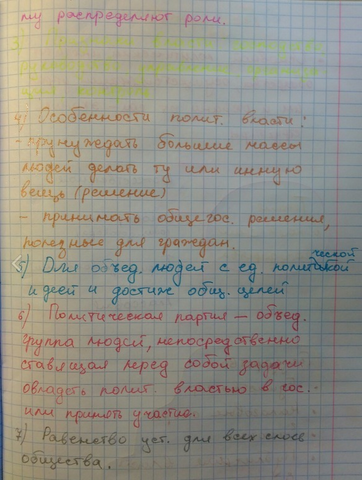 му распределяют роли.
3)
4) Особенности полит. власти:
- прунуждать большие массы
людей делать ту или инную
вещь (решение)
- принимать общегос. решения,
полезные для граждан.
5) Для объед. людей с ед. политической
идеей и достиж общ. целей
6) Политическая партия — объед.
группа людей, непосредственно
ставящая перед собой задачи
овладеть полит. властью в гос.
или принять участие.
7) Равенство уст. для всех слоев
общества.